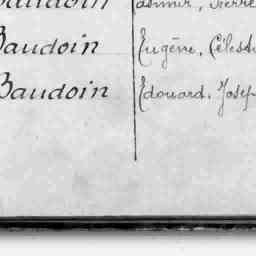 Baudoin Casimir, Pierre
Baudoin Eugène, Célest
Baudoin Edouard, Josep